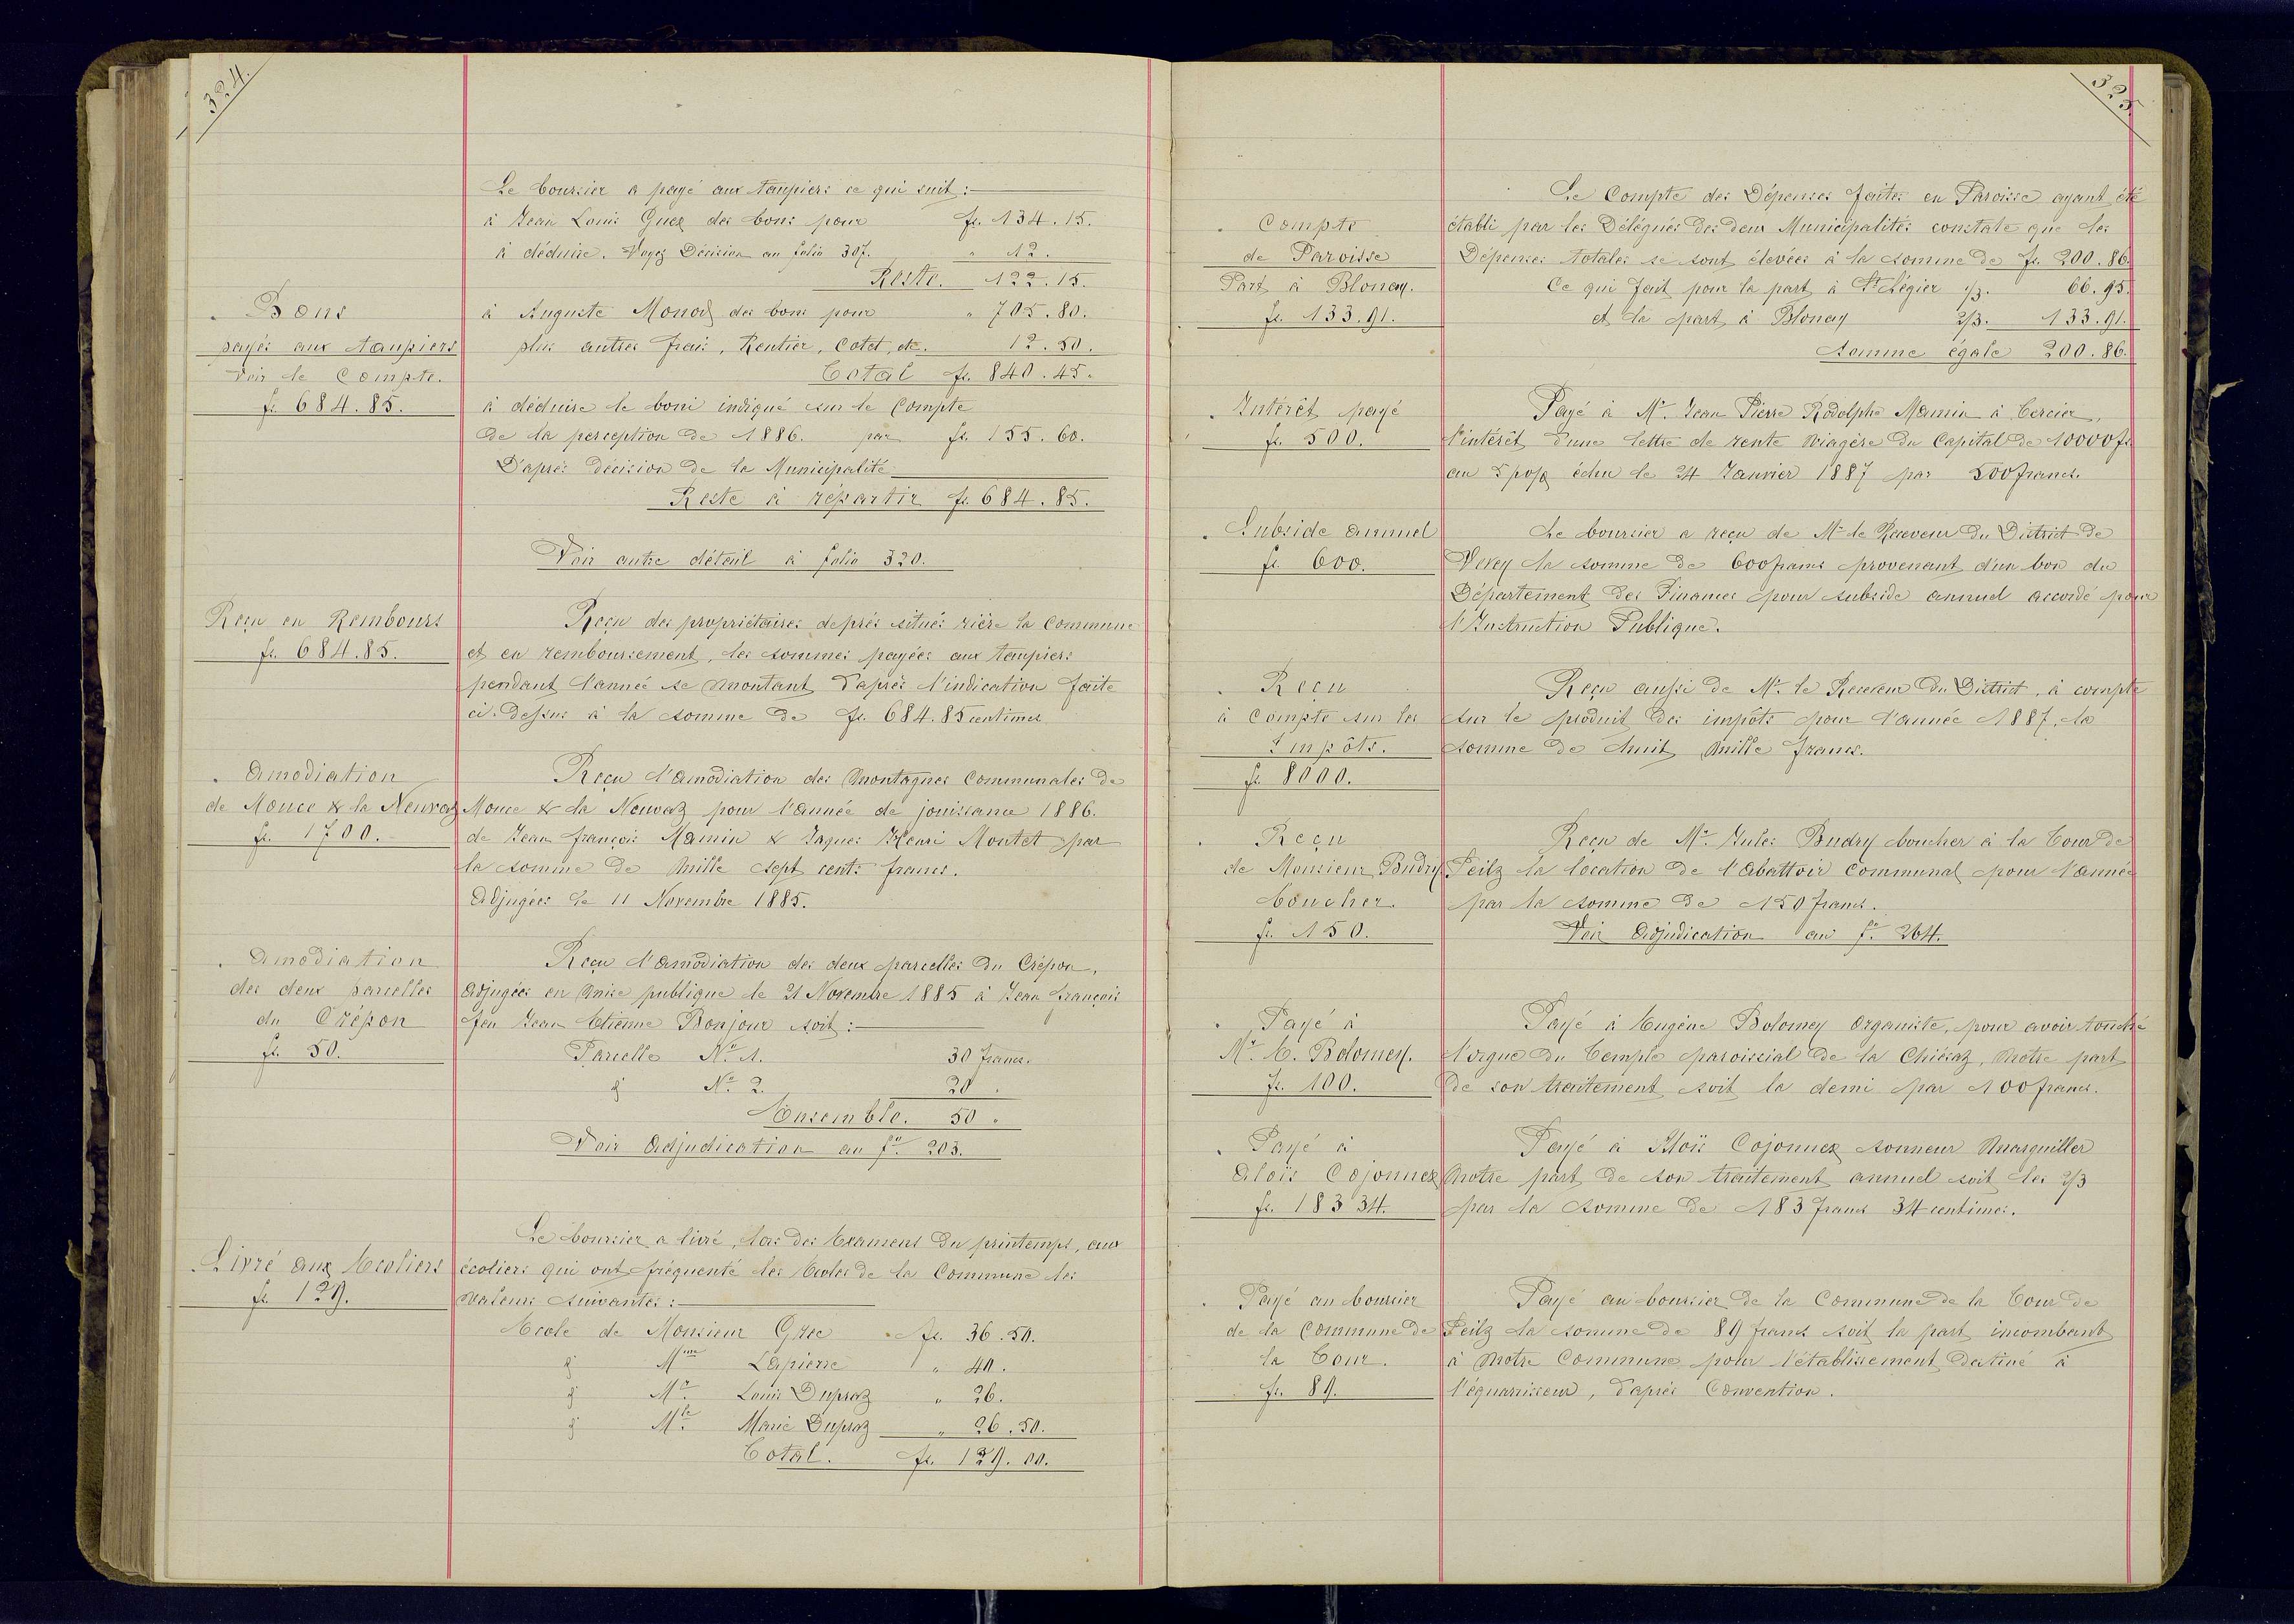 324.
Le boursier a payé aux taupiers ce qui suit :
à Jean Louis Guex des bons pour fr. 134.15.
à déduire. Voyez Décision au folio 307. " 12.
Reste. 122.15.
Bons
payés aux taupiers
Voir le Compte.
fr. 684.85.
à Auguste Monod des bons pour " 705.80.
plus autres frais, Rentier, Cotet, etc. 12.50.
Total fr. 840.45.
à déduire le boni indiqué sur le Compte
de la perception de 1886. par fr. 155.60.
D'après décision de la Municipalité
Reste à répartir fr. 684.85.
Voir autre détail à folio 320.
Reçu en Rembours
fr. 684.85.
Reçu des propriétaires de prés situés rière la Commune
et en remboursement, les sommes payées aux taupiers
pendant l'année se montant d'après l'indication faite
ci-dessus à la somme de fr. 684.85 centimes
Amodiation
de Mouce & la Neuvaz
fr. 1700.
Reçu l'amodiation des Montagnes Communales de
Mouce & la Neuvaz pour l'année de jouissance 1886.
de Jean François Mamin & Jaques Henri Montet par
la somme de Mille sept cents francs.
Adjugées le 11 Novembre 1885.
Amodiation
des deux parcelles
du Crépon
fr. 50.
Reçu l'amodiation des deux parcelles du Crépon,
Adjugées en Mise publique le 21 Novembre 1885 à Jean François
feu Jean Etienne Bonjour soit :
Parcelle No. 1. 30 francs.
" No. 2. 20 "
Ensemble. 50 "
Voir Adjudication au fo. 203.
Livré aux Ecoliers
fr. 129.
Le boursier a livré, lors des Examens du printemps, aux
écoliers qui ont fréquenté les Ecoles de la Commune les
valeurs suivantes :
Ecole de Monsieur Grec fr. 36.50.
" Mme Lapierre " 40.
" Mr. Louis Dupraz " 26.
" Mlle. Marie Dupraz " 26.50.
Total. fr. 129.00.
325.
Compte
de Paroisse
Part à Blonay.
fr. 133.91.
Le Compte des Dépenses faites en Paroisse ayant été
établi par les Délégués des deux Municipalités constate que les
Dépenses totales se sont élevées à la somme de fr. 200.86.
Ce qui fait pour la part à St. Légier 1/3. 66.95.
et la part à Blonay 2/3. 133.91.
Somme égale 200.86.
Intérêt payé
fr. 500.
Payé à Mr. Jean Pierre Rodolphe Mamin à Cercier,
l'intérêt d'une lettre de rente viagère du Capital de 10000 fr.
au 5 po% échu le 24 Janvier 1887 par 500 francs.
Subside annuel
fr. 600.
Le boursier a reçu de Mr. le Receveur du District de
Vevey la somme de 600 francs provenant d'un bon du
Département des Finances pour subside annuel accordé pour
l'Instruction Publique.
Reçu
à Compte sur les
Impôts.
fr. 8000.
Reçu aussi de Mr. le Receveur du District, à compte
sur le produit des impôts pour l'année 1887, la
somme de huit Mille francs.
Reçu
de Monsieur Budry
boucher.
fr. 150.
Reçu de Mr. Jules Budry boucher à la Tour de
Peilz la location de l'Abattoir Communal pour l'année
par la somme de 150 francs.
Voir Adjudication au fo. 264.
Payé à
Mr. E. Bolomey.
fr. 100.
Payé à Eugène Bolomey Organiste, pour avoir touché
l'orgue du Temple paroissial de la Chiésaz, notre part
de son traitement soit la demi par 100 francs.
Payé à
Aloïs Cojonnex
fr. 183 34.
Payé à Aloïs Cojonnex sonneur Marguiller
Notre part de son traitement annuel soit les 2/3
par la somme de 183 francs 34 centimes.
Payé au boursier
de la Commune de
la Tour.
fr. 89.
Payé au boursier de la Commune de la Tour de
Peilz la somme de 89 francs soit la part incombant
à notre Commune pour l'établissement destiné à
l'équarisseur, d'après Convention.